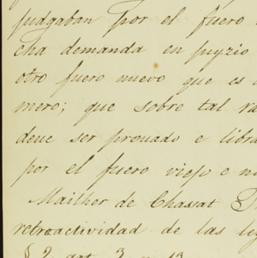 judgaban por el fuero
cha demanda en juyzio
otro fuero nuevo que es
mero; que sobre tal ra
deue ser prouado e libra
por el fuero viejo e n
Mailher de Chassat
retroactividad de las ley
§ 2 art. 3